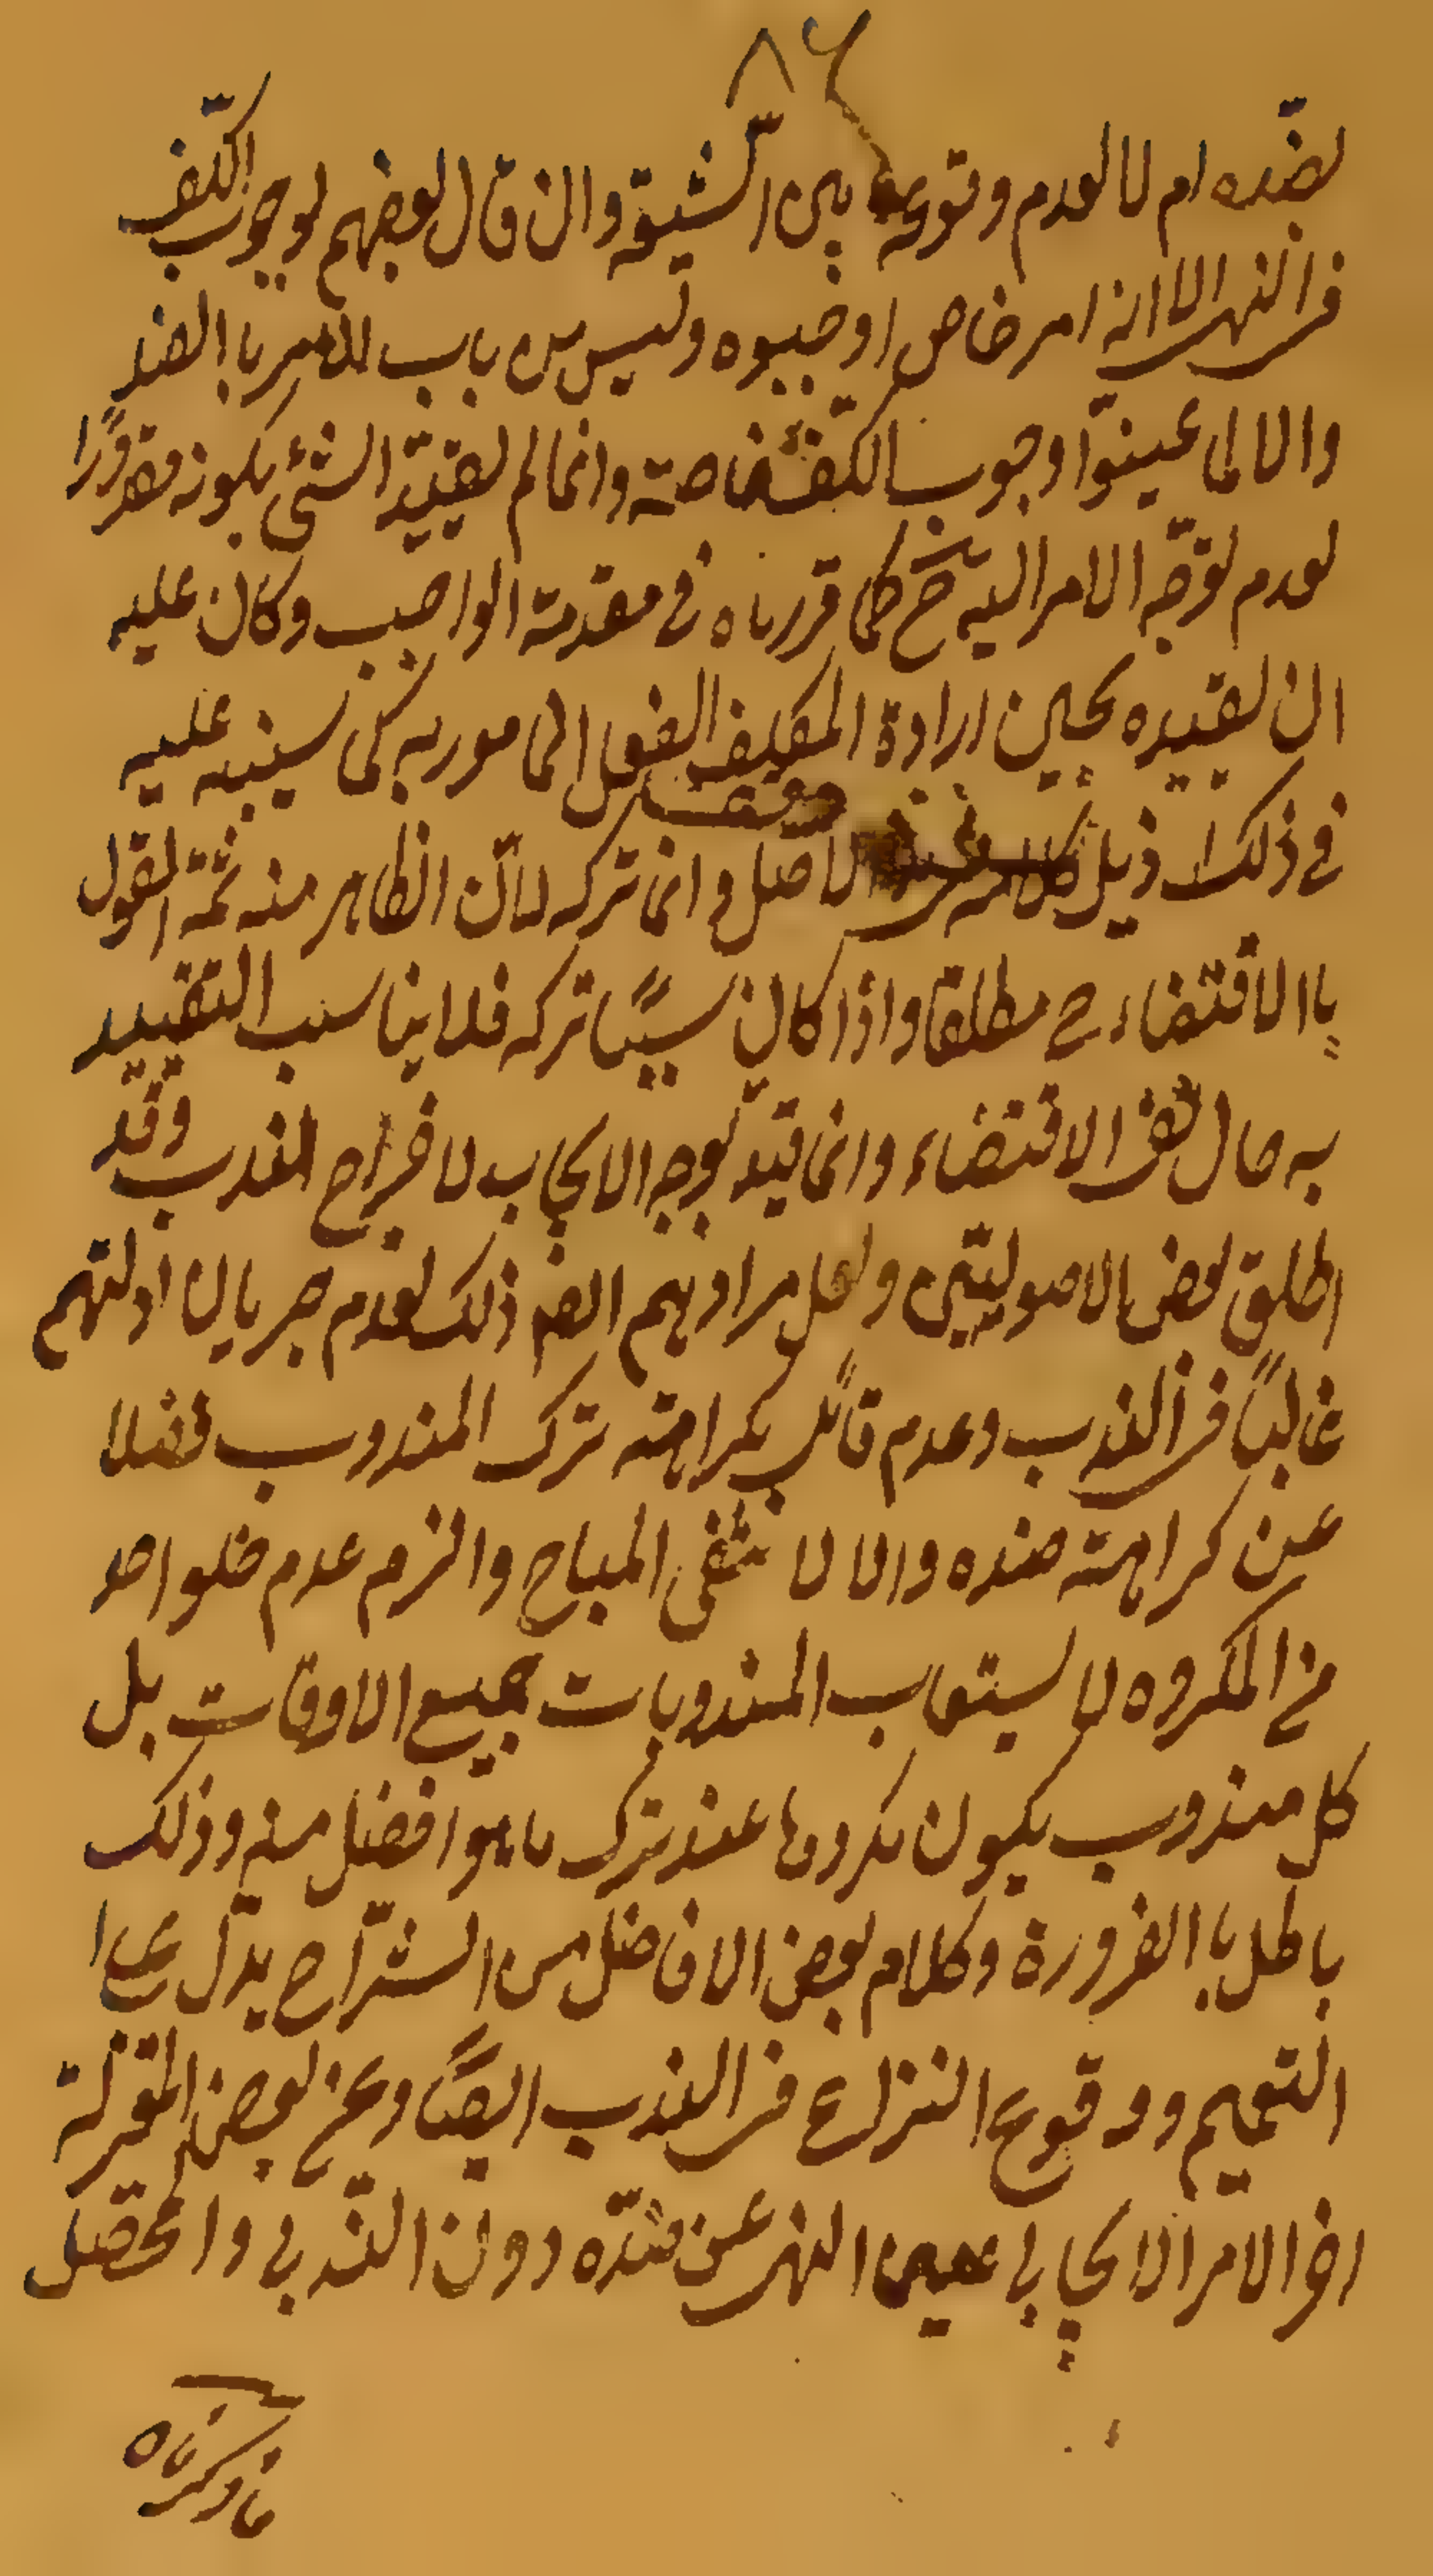 ٨٦
بضده ام لا لعدم وقوعه بين الشيعة وان قال بعضهم بوجوب الكف
في النهى الا انه امر خاص اوجبوه وليس من باب الامر باالضد
والا لما عينوا وجوب الكف خاصة وانما لم يقيد الشئ بكونه مقدورا
لعدم توجه الامر اليه ح كما قررناه في مقدمة الواجب وكان عليه
ان يقيده بحين ارادة المكلف الفعل المامور به كما سينبه عليه
في ذلك ذيل الاصل وانما تركه لان الظاهر منه ثمة القول
باالاقتضاء ح مطلقا واذا كان سببا تركه فلا يناسب التقييد
به حال نفى الاقتضاء وانما قيد بوجه الايجاب لاخراج الندب وقد
اطلق بعض الاصوليين ولعل مرادهم ايضا ذلك لعدم جريان ادلتهم
غالبا في الندب وعدم قائل بكراهة ترك المندوب فضلا
عن كراهة ضده والا لانتفى المباح والزم عدم خلو احد
من المكروه لاستيعاب المندوبات جميع الاوقات بل
كل مندوب يكون مكروها عند ترك ما هو افضل منه وذلك
باطل باالضرورة وكلام بعض الافاضل من الشراح يدل على
التعميم ووقوع النزاع في الندب ايضا وعن بعض المعتزلة
ان الامر الايجابي عين النهى عن ضده دون الندبي والمحصل
ما ذكرناه